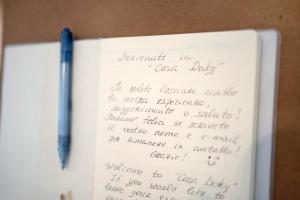 Benvenuti in
"Casa Doky"
Se volete lasciare scritto
la vostra esperienza,
suggerimento o saluto!
Saremo felici se scrivete
il vostro nome e e-mail
per rimanere in contatto!
Grazie!
Welcome to "Casa Doky"
If you would like to
leave your